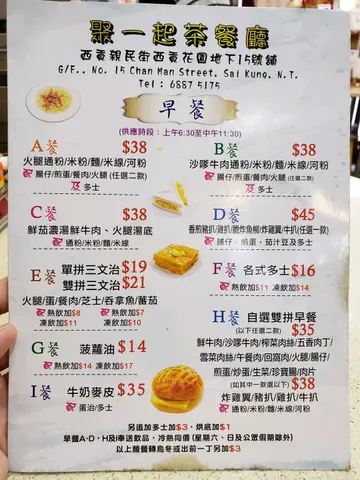 聚一起茶餐廳
西貢親民街西貢花園地下15號舖
G/F., No. 15 Chan Man Street, Sai Kung, N.T.
Tel : 6887 5175
早餐
(供應時段：上午6:30至中午11:30)
A餐 $38
火腿通粉/米粉/麵/米線/河粉
配 腸仔/煎蛋/餐肉/火腿 (任選二款)
及 多士
B餐 $38
沙嗲牛肉通粉/米粉/麵/米線/河粉
配 腸仔/煎蛋/餐肉/火腿 (任選二款)
及 多士
C餐 $38
鮮茄濃湯鮮牛肉、火腿湯底
配 通粉/米粉/麵/米線
D餐 $45
香煎豬扒/雞扒/脆炸魚柳/炸雞翼/牛扒(任選一款)
配 腸仔、煎蛋、茄汁豆及多士
E餐 單拼三文治 $19
雙拼三文治 $21
火腿/蛋/餐肉/芝士/吞拿魚/蕃茄
配 熱飲加$8 配 熱飲加$7
凍飲加$11 凍飲加$10
F餐 各式多士 $16
配 熱飲加$11 凍飲加$14
G餐 菠蘿油 $14
配 熱飲加$14 凍飲加$17
H餐 自選雙拼早餐
(以下任選二款) $35
鮮牛肉/沙嗲牛肉/榨菜肉絲/五香肉丁/
雪菜肉絲/午餐肉/回窩肉/火腿/腸仔/
煎蛋/炒蛋/生菜/珍寶腸/肉片
(如其中一款選以下) $38
炸雞翼/豬扒/雞扒/牛扒
配 通粉/米粉/麵/米線/河粉
I餐 牛奶麥皮 $35
配 蛋治/多士
另追加多士加$3、烘底加$1
早餐A-D，H及I奉送飲品，冷熱同價 (星期六、日及公眾假期除外)
以上麵餐轉烏冬或出前一丁另加$3